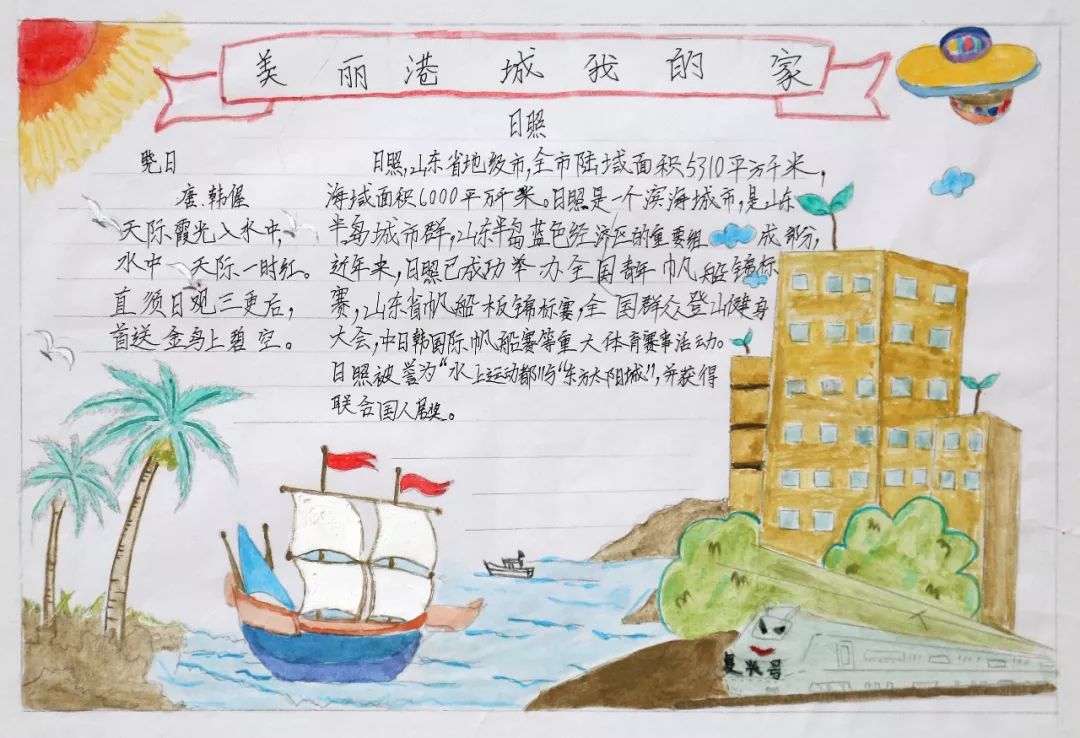 美丽港城我的家
日照
晓日
唐.韩偓
天际霞光入水中，
水中天际一时红。
直须日观三更后，
首送金乌上碧空。
日照，山东省地级市，全市陆域面积5310平方千米，
海域面积6000平方千米。日照是一个滨海城市，是山东
半岛城市群，山东半岛蓝色经济区的重要组成部分，
近年来，日照已成功举办全国青年帆船锦标
赛，山东省帆船板锦标赛，全国群众登山健身
大会，中日韩国际帆船赛等重大体育赛事活动。
日照被誉为“水上运动都”与“东方太阳城”，并获得
联合国人居奖。
复兴号